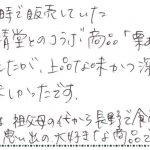 時で販売していた
清堂とのコラボ商品「栗
したが、上品な味かつ深
しかったです。
は祖父母の代から長野で食
思い出の大好きな商品で